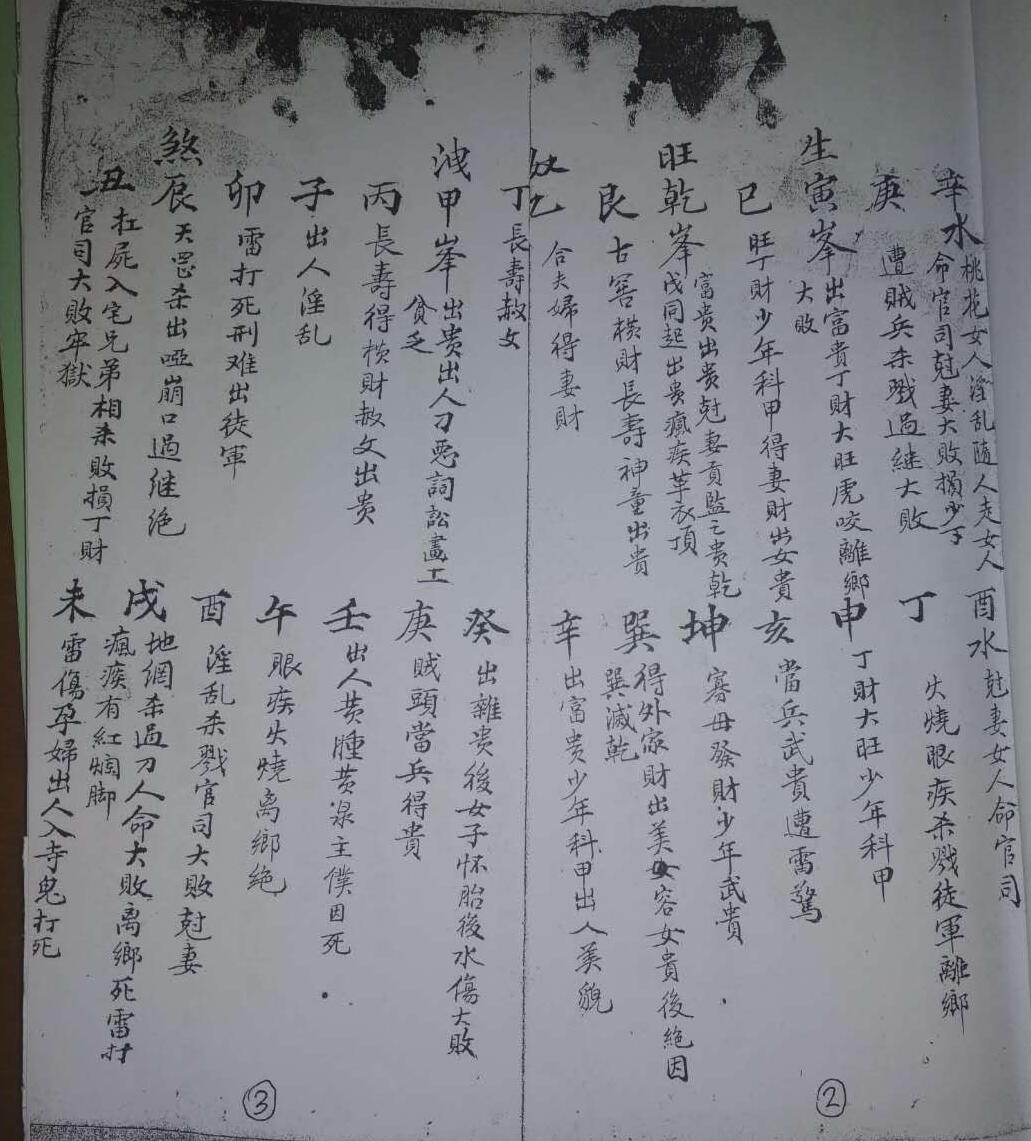 辛水 桃花女人淫乱随人走女人
命官司尅妻大败損少丁
庚 遭賊兵杀戮过继大败
生寅峯出富貴丁財大旺虎咬離鄉
大败
巳 旺丁財少年科甲得妻財出女貴
旺乾峯 富贵出贵尅妻贡監之贵乾
戊同起出贵瘋疾革衣頂
艮 古窖横財長壽神童出貴
奴乙 合夫婦得妻財
丁 長壽赦文
酉水 尅妻女人命官司
丁 火燒眼疾杀戮徒軍離鄉
申 丁財大旺少年科甲
亥 當兵武貴遭雷驚
坤 寡母發財少年武貴
巽 得外家財出美女容女貴後絕因
巽減乾
辛 出富贵少年科甲出人美貌
②
洩甲峯 出贵出人刁惡詞訟畫工
貧乏
丙 長壽得横財赦文出贵
子 出人淫乱
卯 雷打死刑难出徒軍
煞辰 天罡杀出啞崩口過继绝
丑 扛屍入宅兄弟相杀敗損丁財
官司大敗牢獄
癸 出雜贵後女子怀胎後水傷大敗
庚 賊頭當兵得貴
壬 出人黄腫黄泉主僕因死
午 眼疾火燒离鄉绝
酉 淫乱杀戮官司大敗尅妻
戌 地網杀過刀人命大敗离鄉死雷打
瘋疾有紅爛脚
未 雷傷孕婦出人入寺鬼打死
③